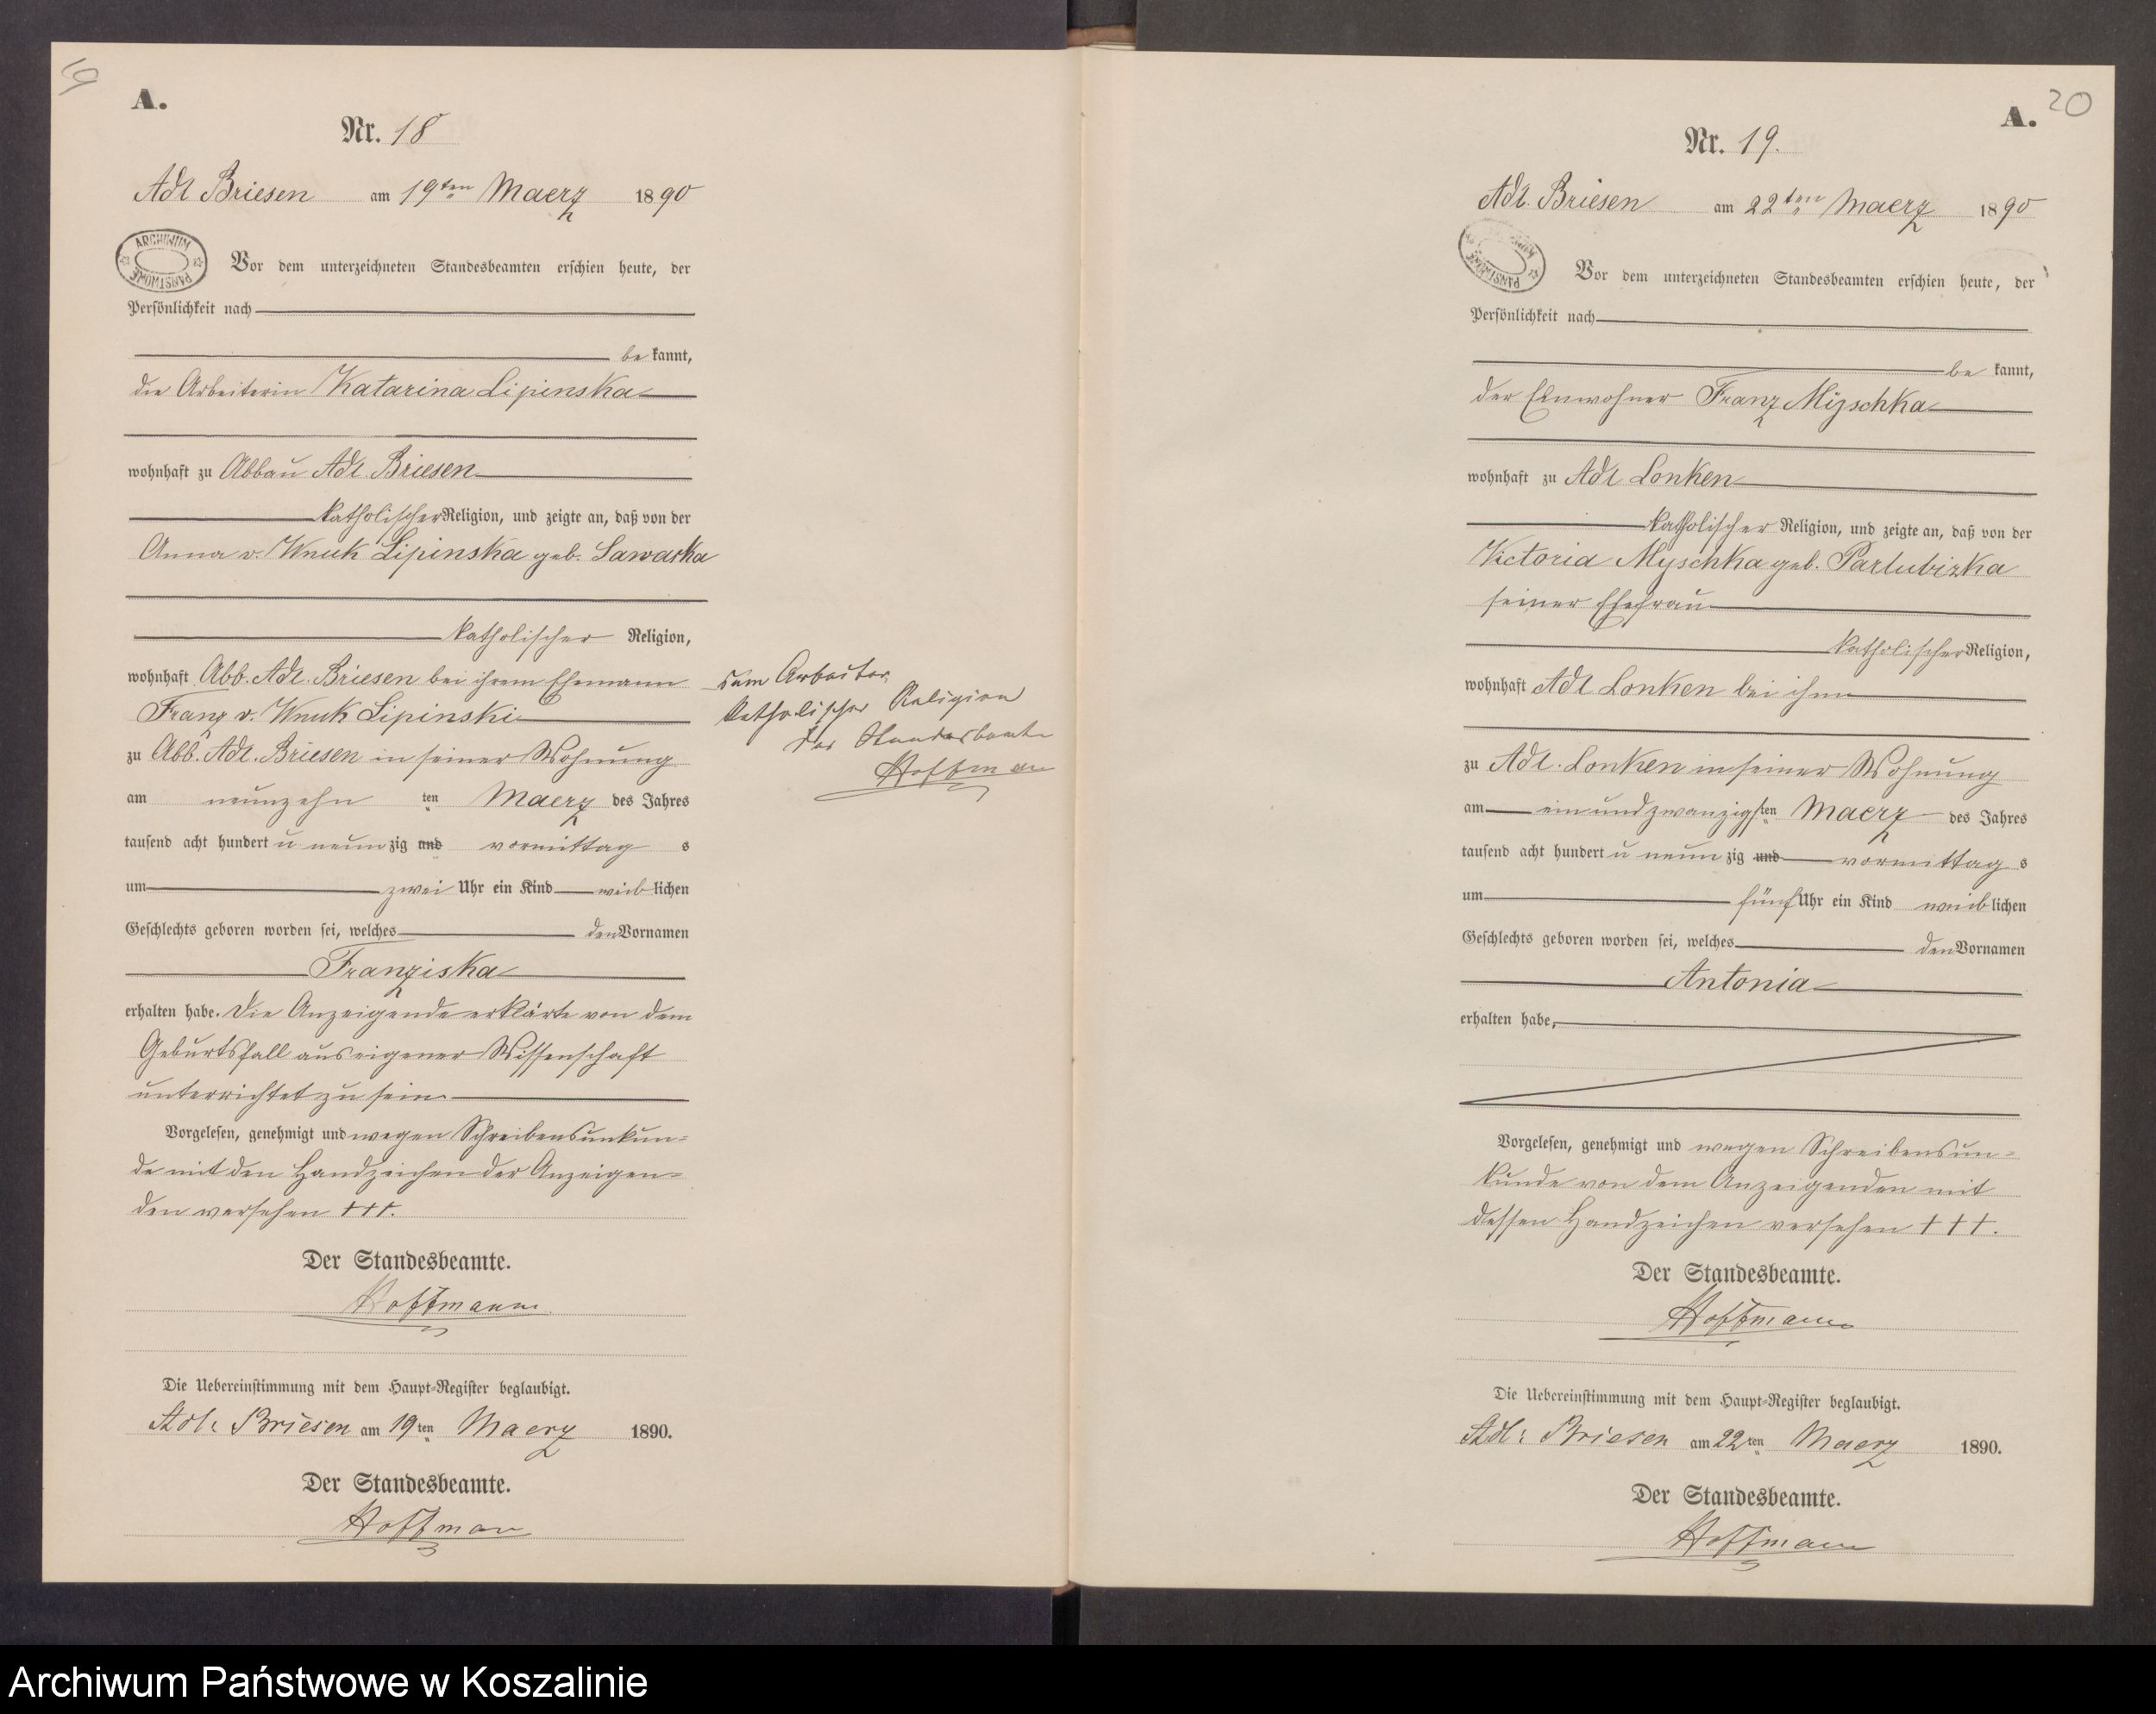 19
A.
Nr. 18
Adl Briesen am 19ten Maerz 1890
ARCHIWUM PAŃSTWOWE
Vor dem unterzeichneten Standesbeamten erschien heute, der
Persönlichkeit nach
be kannt,
die Arbeiterin Katarina Lipinska
wohnhaft zu Abbau Adl. Briesen
katholischer Religion, und zeigte an, daß von der
Anna v. Wnuk Lipinska geb. Sawaska
katholischer Religion,
wohnhaft Abb. Adl. Briesen bei ihrem Ehemann
Franz v. Wnuk Lipinski
zu Abb. Adl. Briesen in seiner Wohnung
am neunzehn ten Maerz des Jahres
tausend acht hundert u neun zig und vormittag s
um zwei Uhr ein Kind weib lichen
Geschlechts geboren worden sei, welches den Vornamen
Franziska
erhalten habe. Die Anzeigende erklärte von dem
Geburtsfall aus eigener Wissenschaft
unterrichtet zu sein.
Vorgelesen, genehmigt und wegen Schreibensunkun=
de mit den Handzeichen der Anzeigen=
den versehen +++.
Der Standesbeamte.
Hoffmann
Die Uebereinstimmung mit dem Haupt=Register beglaubigt.
Adl: Briesen am 19ten Maerz 1890.
Der Standesbeamte.
Hoffmann
dem Arbeiter
katholischer Religion
Der Standesbeamte
Hoffmann
20
A.
Nr. 19.
Adl. Briesen am 22ten Maerz 1890
PAŃSTWOWE
Vor dem unterzeichneten Standesbeamten erschien heute, der
Persönlichkeit nach
be kannt,
der Einwohner Franz Myschka
wohnhaft zu Adl Lonken
katholischer Religion, und zeigte an, daß von der
Victoria Myschka geb. Parlubizka
seiner Ehefrau
katholischer Religion,
wohnhaft Adl Lonken bei ihm
zu Adl. Lonken in seiner Wohnung
am einundzwanzigsten Maerz des Jahres
tausend acht hundert u neun zig und vormittag s
um fünf Uhr ein Kind weib lichen
Geschlechts geboren worden sei, welches den Vornamen
Antonia
erhalten habe,
Vorgelesen, genehmigt und wegen Schreibensun=
kunde von dem Anzeigenden mit
dessen Handzeichen versehen +++.
Der Standesbeamte.
Hoffmann
Die Uebereinstimmung mit dem Haupt=Register beglaubigt.
Adl: Briesen am 22ten Maerz 1890.
Der Standesbeamte.
Hoffmann
Archiwum Państwowe w Koszalinie